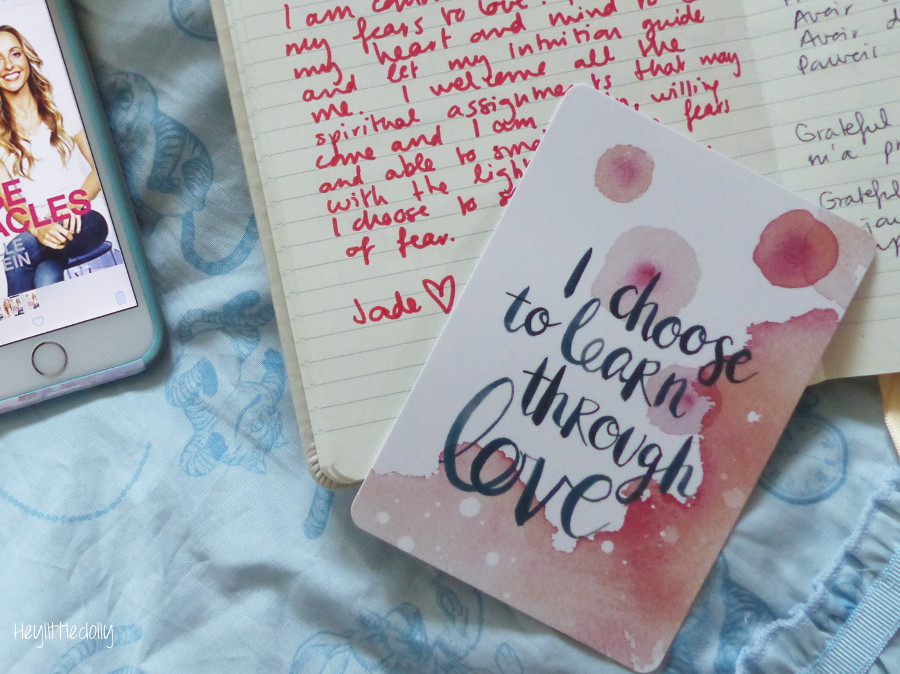 SE
ACLES
LE
EIN
I am
my fears to love.
my heart and mind to
and let my intuition guide
me. I welcome all the
spiritual assignments that may
come and I am willing
and able to fears
with the light
I choose to
of fear.
Jade♡
Avoir
Avoir d
Pouvoir
Grateful
m'a p
Grateful
I choose
to learn
through
love
Heylittledolly